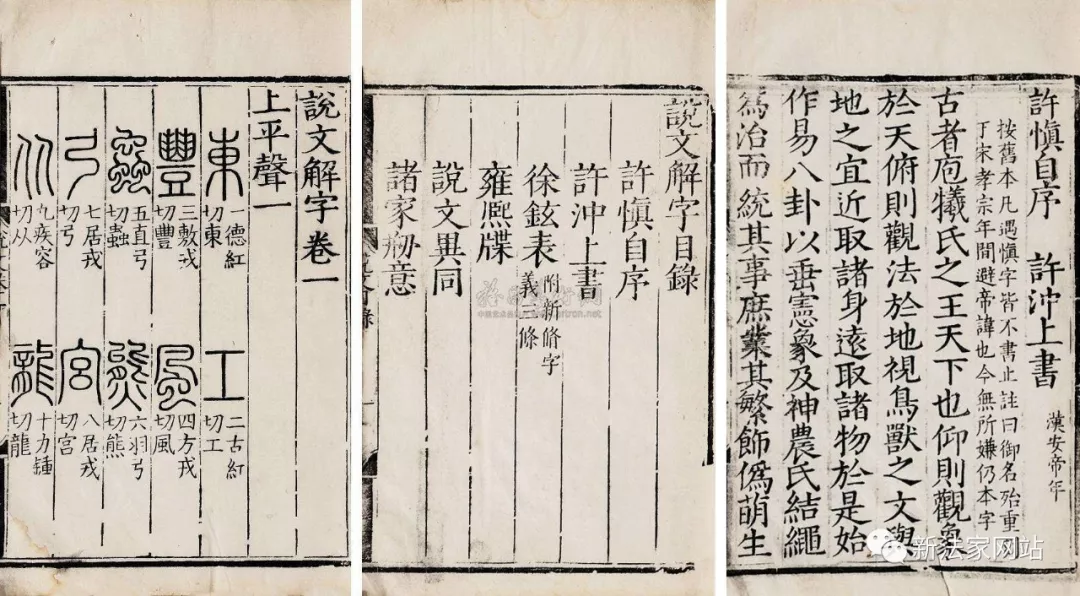 許慎自序　許沖上書　漢安帝年
按舊本凡遇慎字皆不書止註曰御名殆重刊
于宋孝宗年間避帝諱也今無所嫌仍本字
古者庖犧氏之王天下也仰則觀象
於天俯則觀法於地視鳥獸之文與
地之宜近取諸身遠取諸物於是始
作易八卦以垂憲象及神農氏結繩
為治而統其事庶業其繁飾偽萌生
說文解字目錄
許慎自序
許沖上書
徐鉉表　附新脩字義三條
雍熙牒
說文異同
諸家刱意
說文解字卷一
上平聲一
東　一德紅切東　工　二古紅切工
豐　三敷戎切豐　風　四方戎切風
蟲　五直弓切蟲　熊　六羽弓切熊
弓　七居戎切弓　宮　八居戎切宮
从　九疾容切从　龍　十力鍾切龍
新法家网站